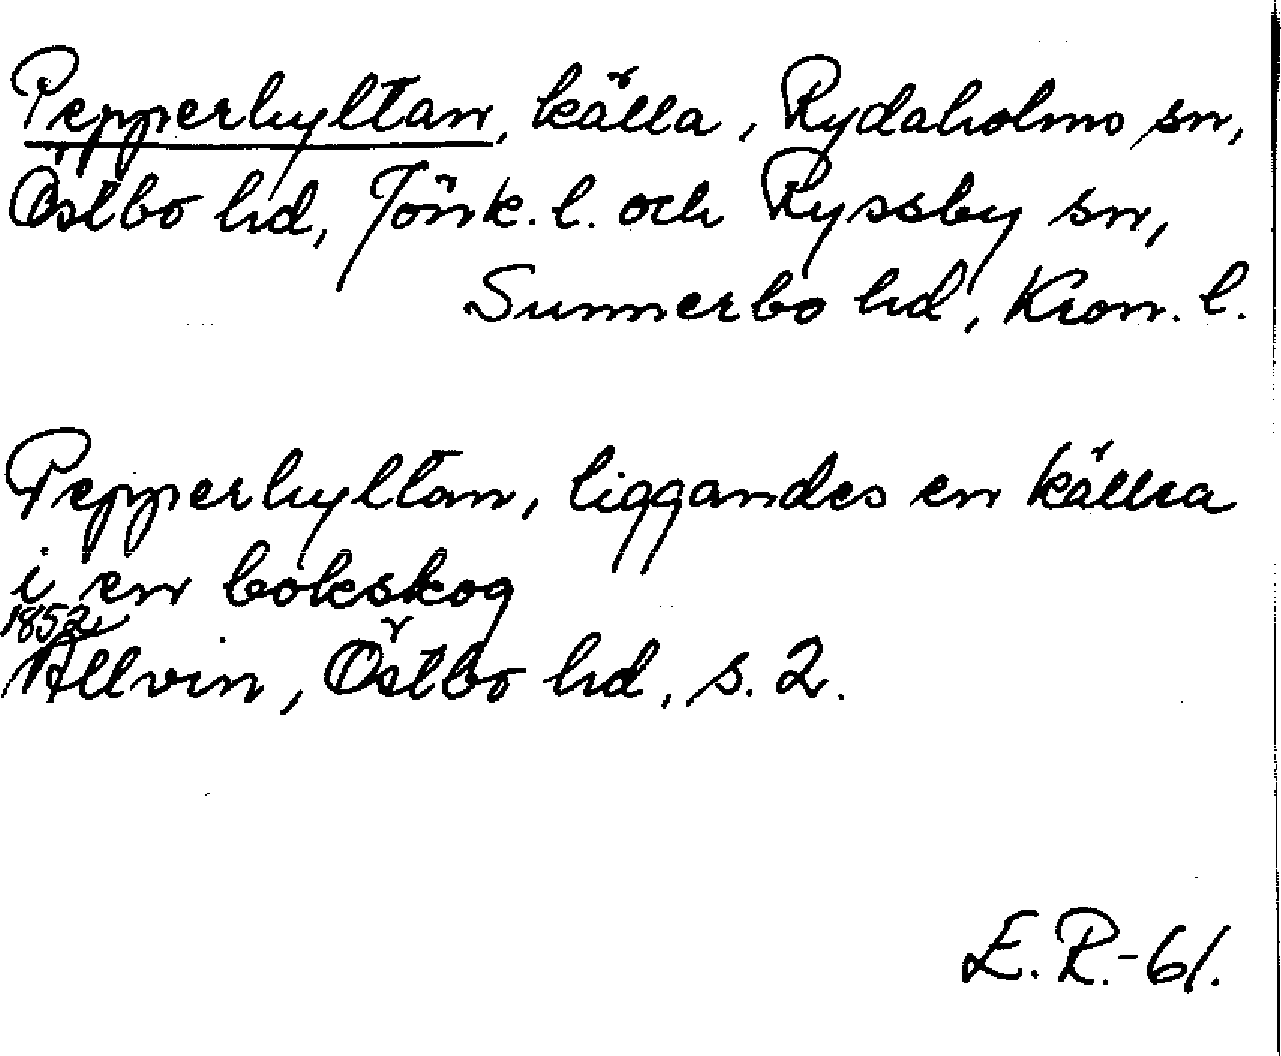 Pepperhyltan, källa, Rydaholms sn,
Östbo hd, Jönk. l. och Ryssby sn,
Sunnerbo hd, Kron. l.
Pepperhyltan, liggandes en källra
i en bokskog
1852
Allvin, Östbo hd, s. 2.
E.R.-61.